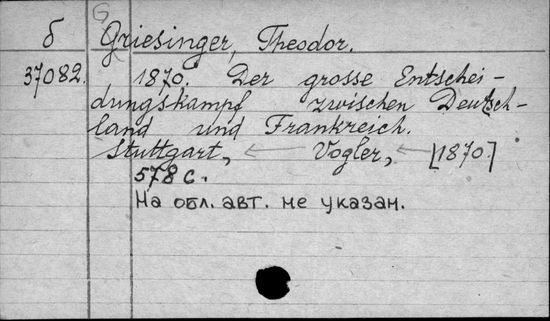 G
б Griesinger, Theodor.
37082. 1870. Der grosse Entschei-
dungskampf zwischen Deutsch-
land und Frankreich.
Stuttgart, ← Vogler, ← [1870]
578 с.
На обл. авт. не указан.